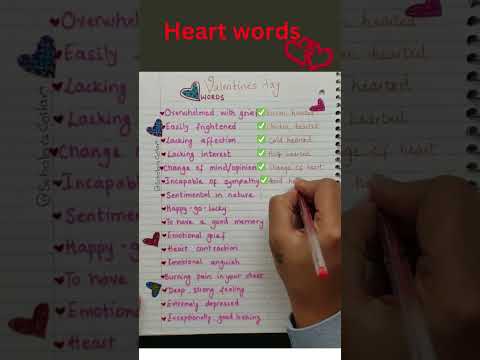 Heart words
Valentines day
WORDS
Overwhelmed with grief ✅ broken hearted
Easily frightened ✅ chicken hearted
Lacking affection ✅ cold hearted
Lacking interest ✅ Half hearted
Change of mind/opinion ✅ change of heart
Incapable of sympathy ✅
Sentimental in nature
Happy-go-lucky
To have a good memory
Emotional grief
Heart contraction
Emotional anguish
Burning pain in your chest
Deep strong feeling
Extremely depressed
Exceptionally good looking
Overwhel
Easily
Lacking
Lacking
Change
Incapab
Sentime
Happy-g
To have
Emotiona
Heart
hearted
hearted
hearted
of heart